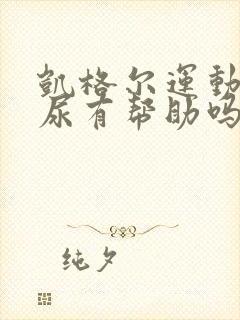 凱格尔運動
尿有帮助吗
纯夕